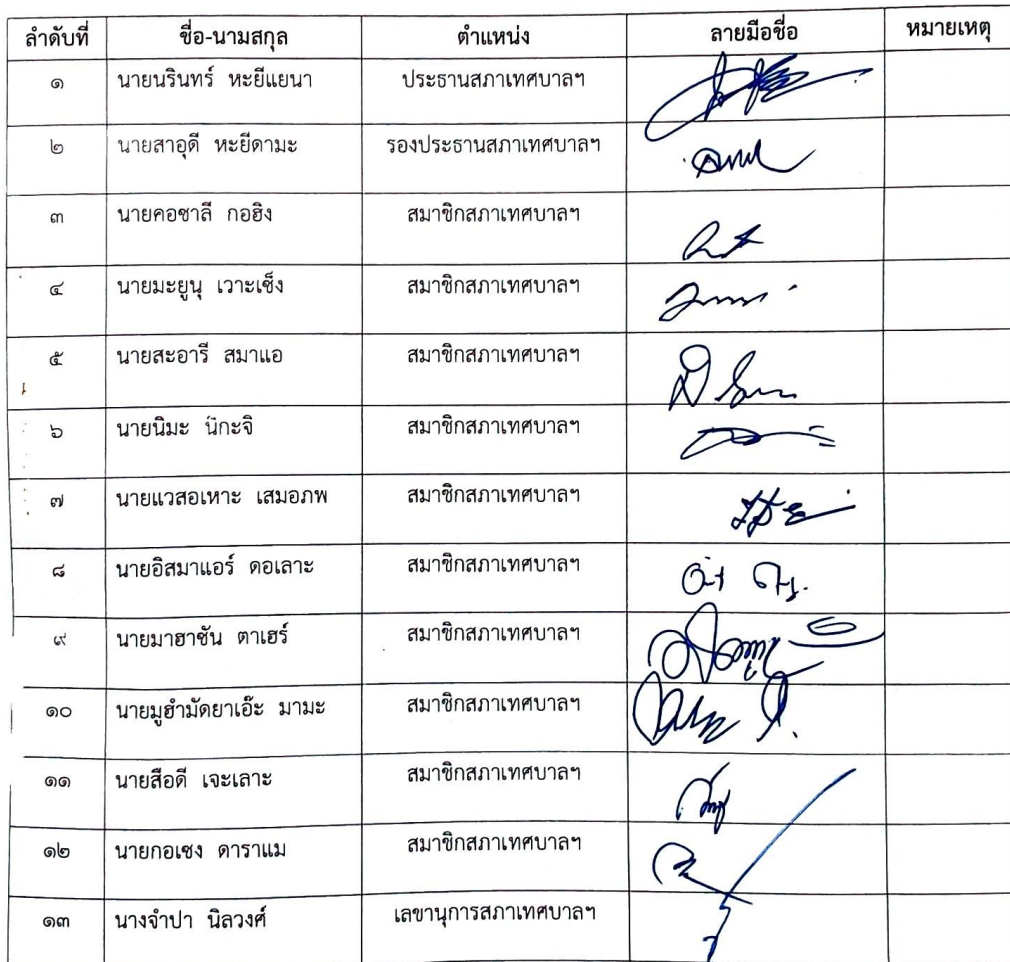 ลำดับที่ ชื่อ-นามสกุล ตำแหน่ง ลายมือชื่อ หมายเหตุ
๑ นายนรินทร์ หะยีแยนา ประธานสภาเทศบาลฯ
๒ นายสาอุดี หะยีดามะ รองประธานสภาเทศบาลฯ
๓ นายคอซาลี กอฮิง สมาชิกสภาเทศบาลฯ
๔ นายมะยูนุ เวาะเซ็ง สมาชิกสภาเทศบาลฯ
๕ นายสะอารี สมาแอ สมาชิกสภาเทศบาลฯ
๖ นายนิมะ นิกะจิ สมาชิกสภาเทศบาลฯ
๗ นายแวสอเหาะ เสมอภพ สมาชิกสภาเทศบาลฯ
๘ นายอิสมาแอร์ ดอเลาะ สมาชิกสภาเทศบาลฯ
๙ นายมาฮาซัน ตาเฮร์ สมาชิกสภาเทศบาลฯ
๑๐ นายมูฮำมัดยาเอ๊ะ มามะ สมาชิกสภาเทศบาลฯ
๑๑ นายสือดี เจะเลาะ สมาชิกสภาเทศบาลฯ
๑๒ นายกอเซง ดาราแม สมาชิกสภาเทศบาลฯ
๑๓ นางจำปา นิลวงศ์ เลขานุการสภาเทศบาลฯ